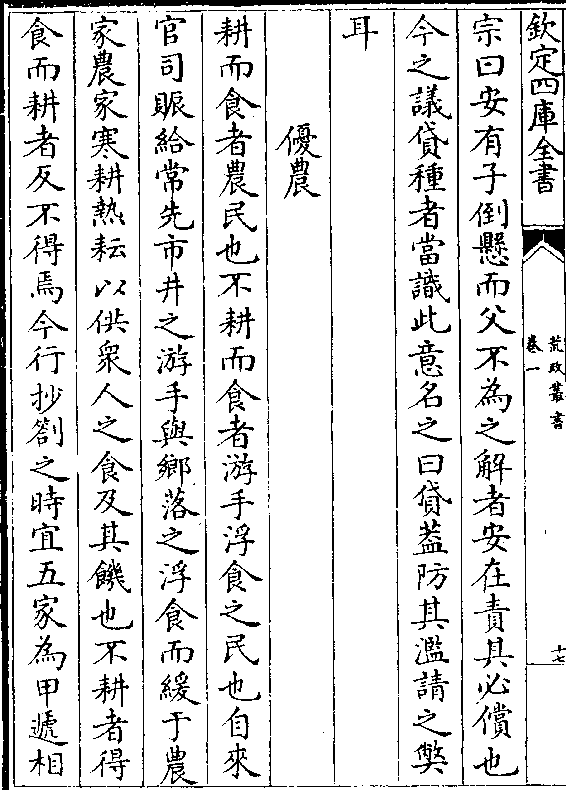 欽定四庫全書
荒政叢書
卷一
十七
宗曰安有子倒懸而父不為之解者安在責其必償也
今之議貸種者當識此意名之曰貸葢防其濫請之獘
耳
優農
耕而食者農民也不耕而食者游手浮食之民也自來
官司賑給常先市井之游手與鄉落之浮食而緩于農
家農家寒耕熱耘以供衆人之食及其饑也不耕者得
食而耕者反不得焉今行抄劄之時宜五家為甲遞相